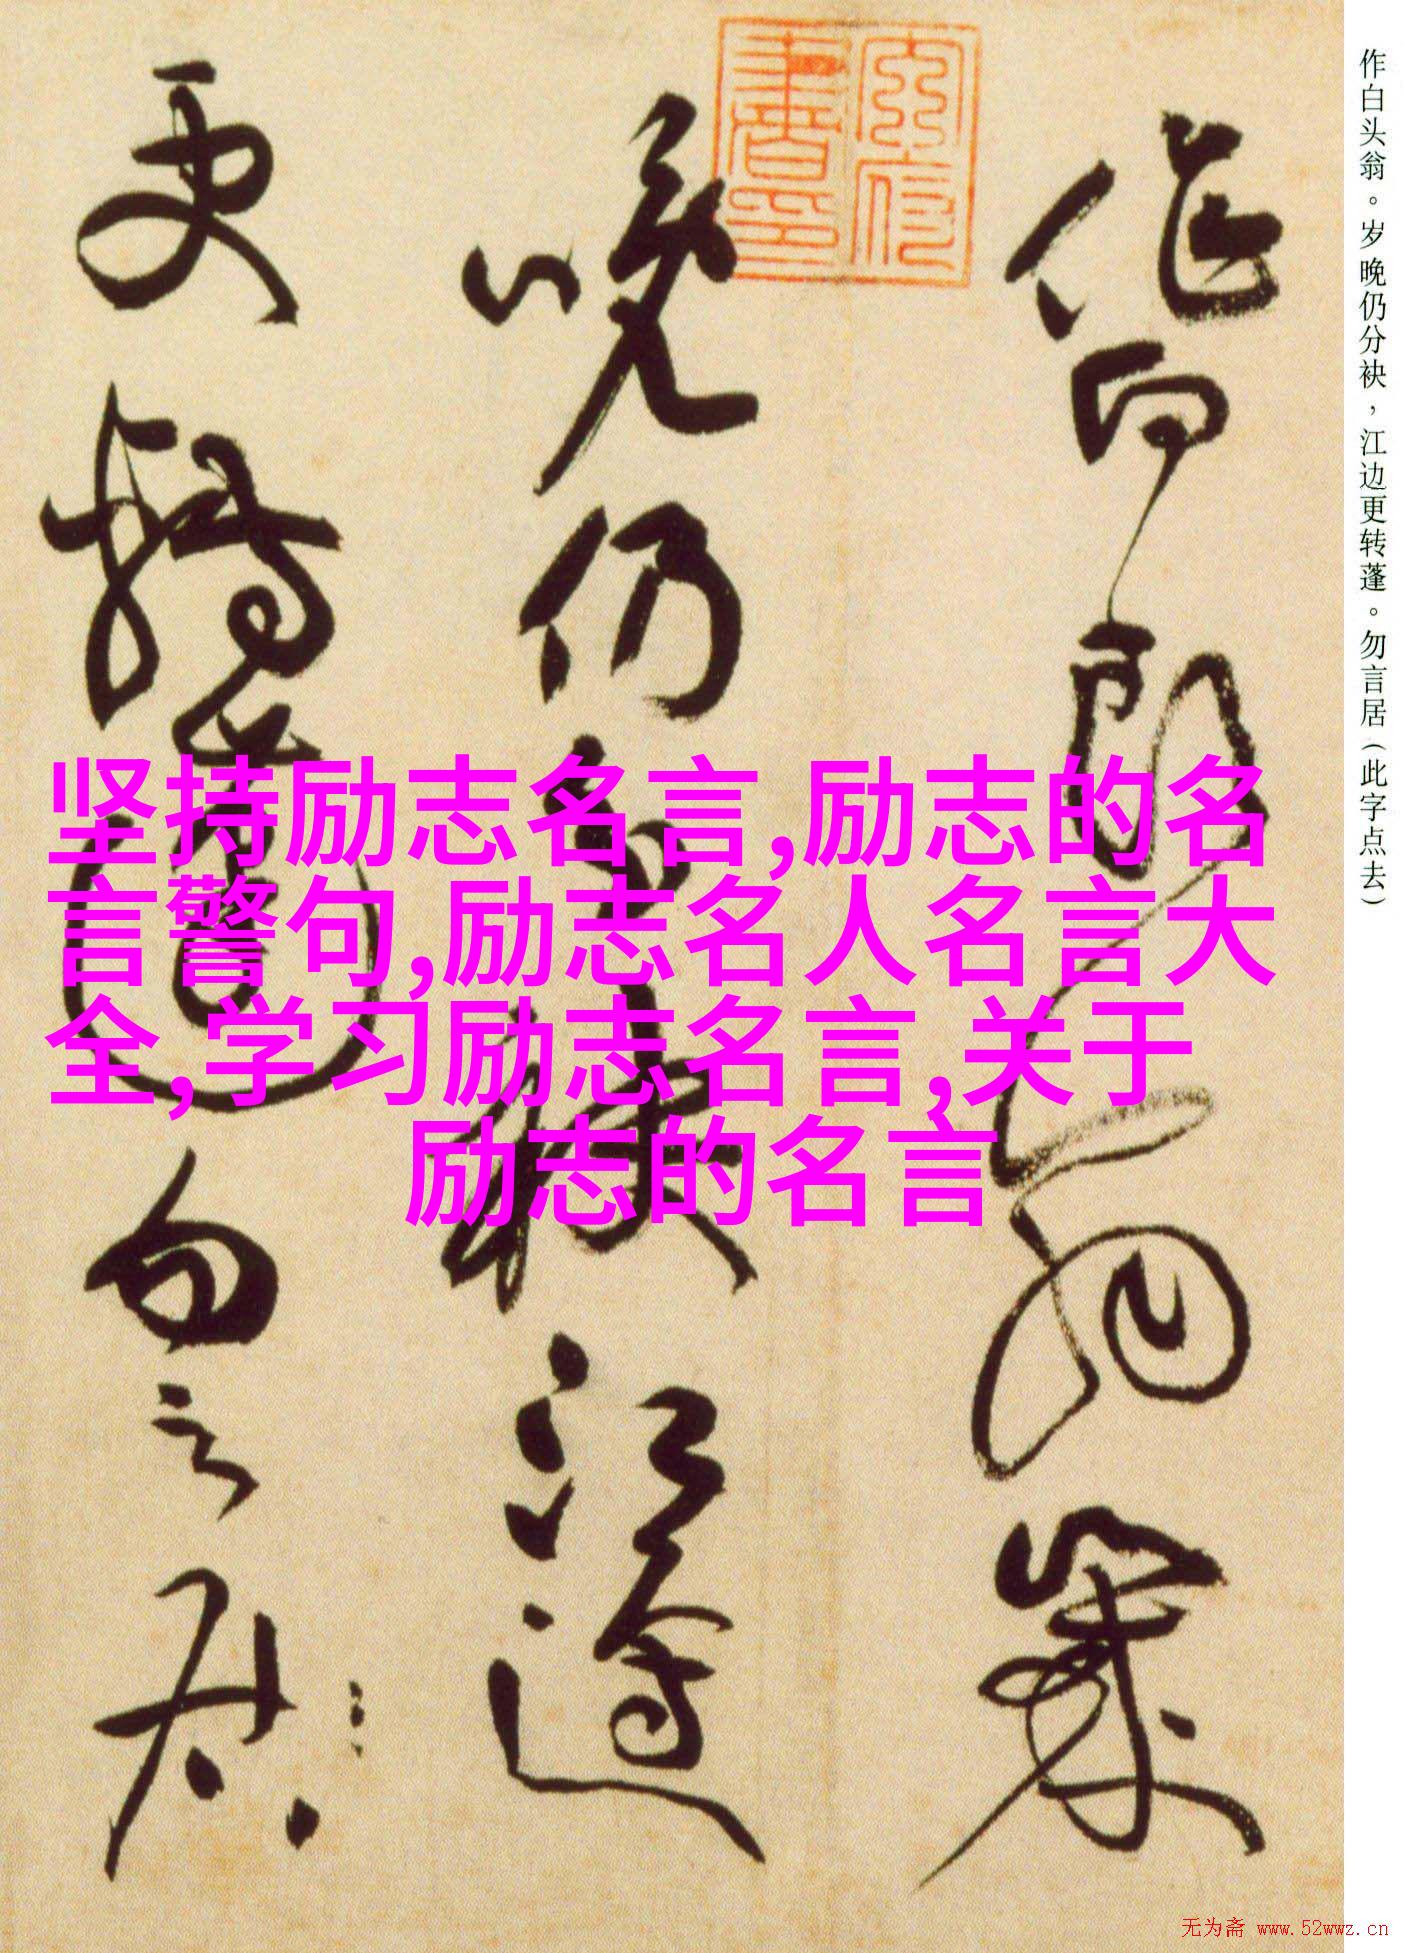 作白头翁。岁晚仍分袂，江边更转蓬。勿言居(此字点去)
作白頭翁歲
晚仍分袂江邊
更轉蓬勿言居
坚持励志名言,励志的名
言警句,励志名人名言大
全,学习励志名言,关于
励志的名言
无为斋 www.52wwz.cn